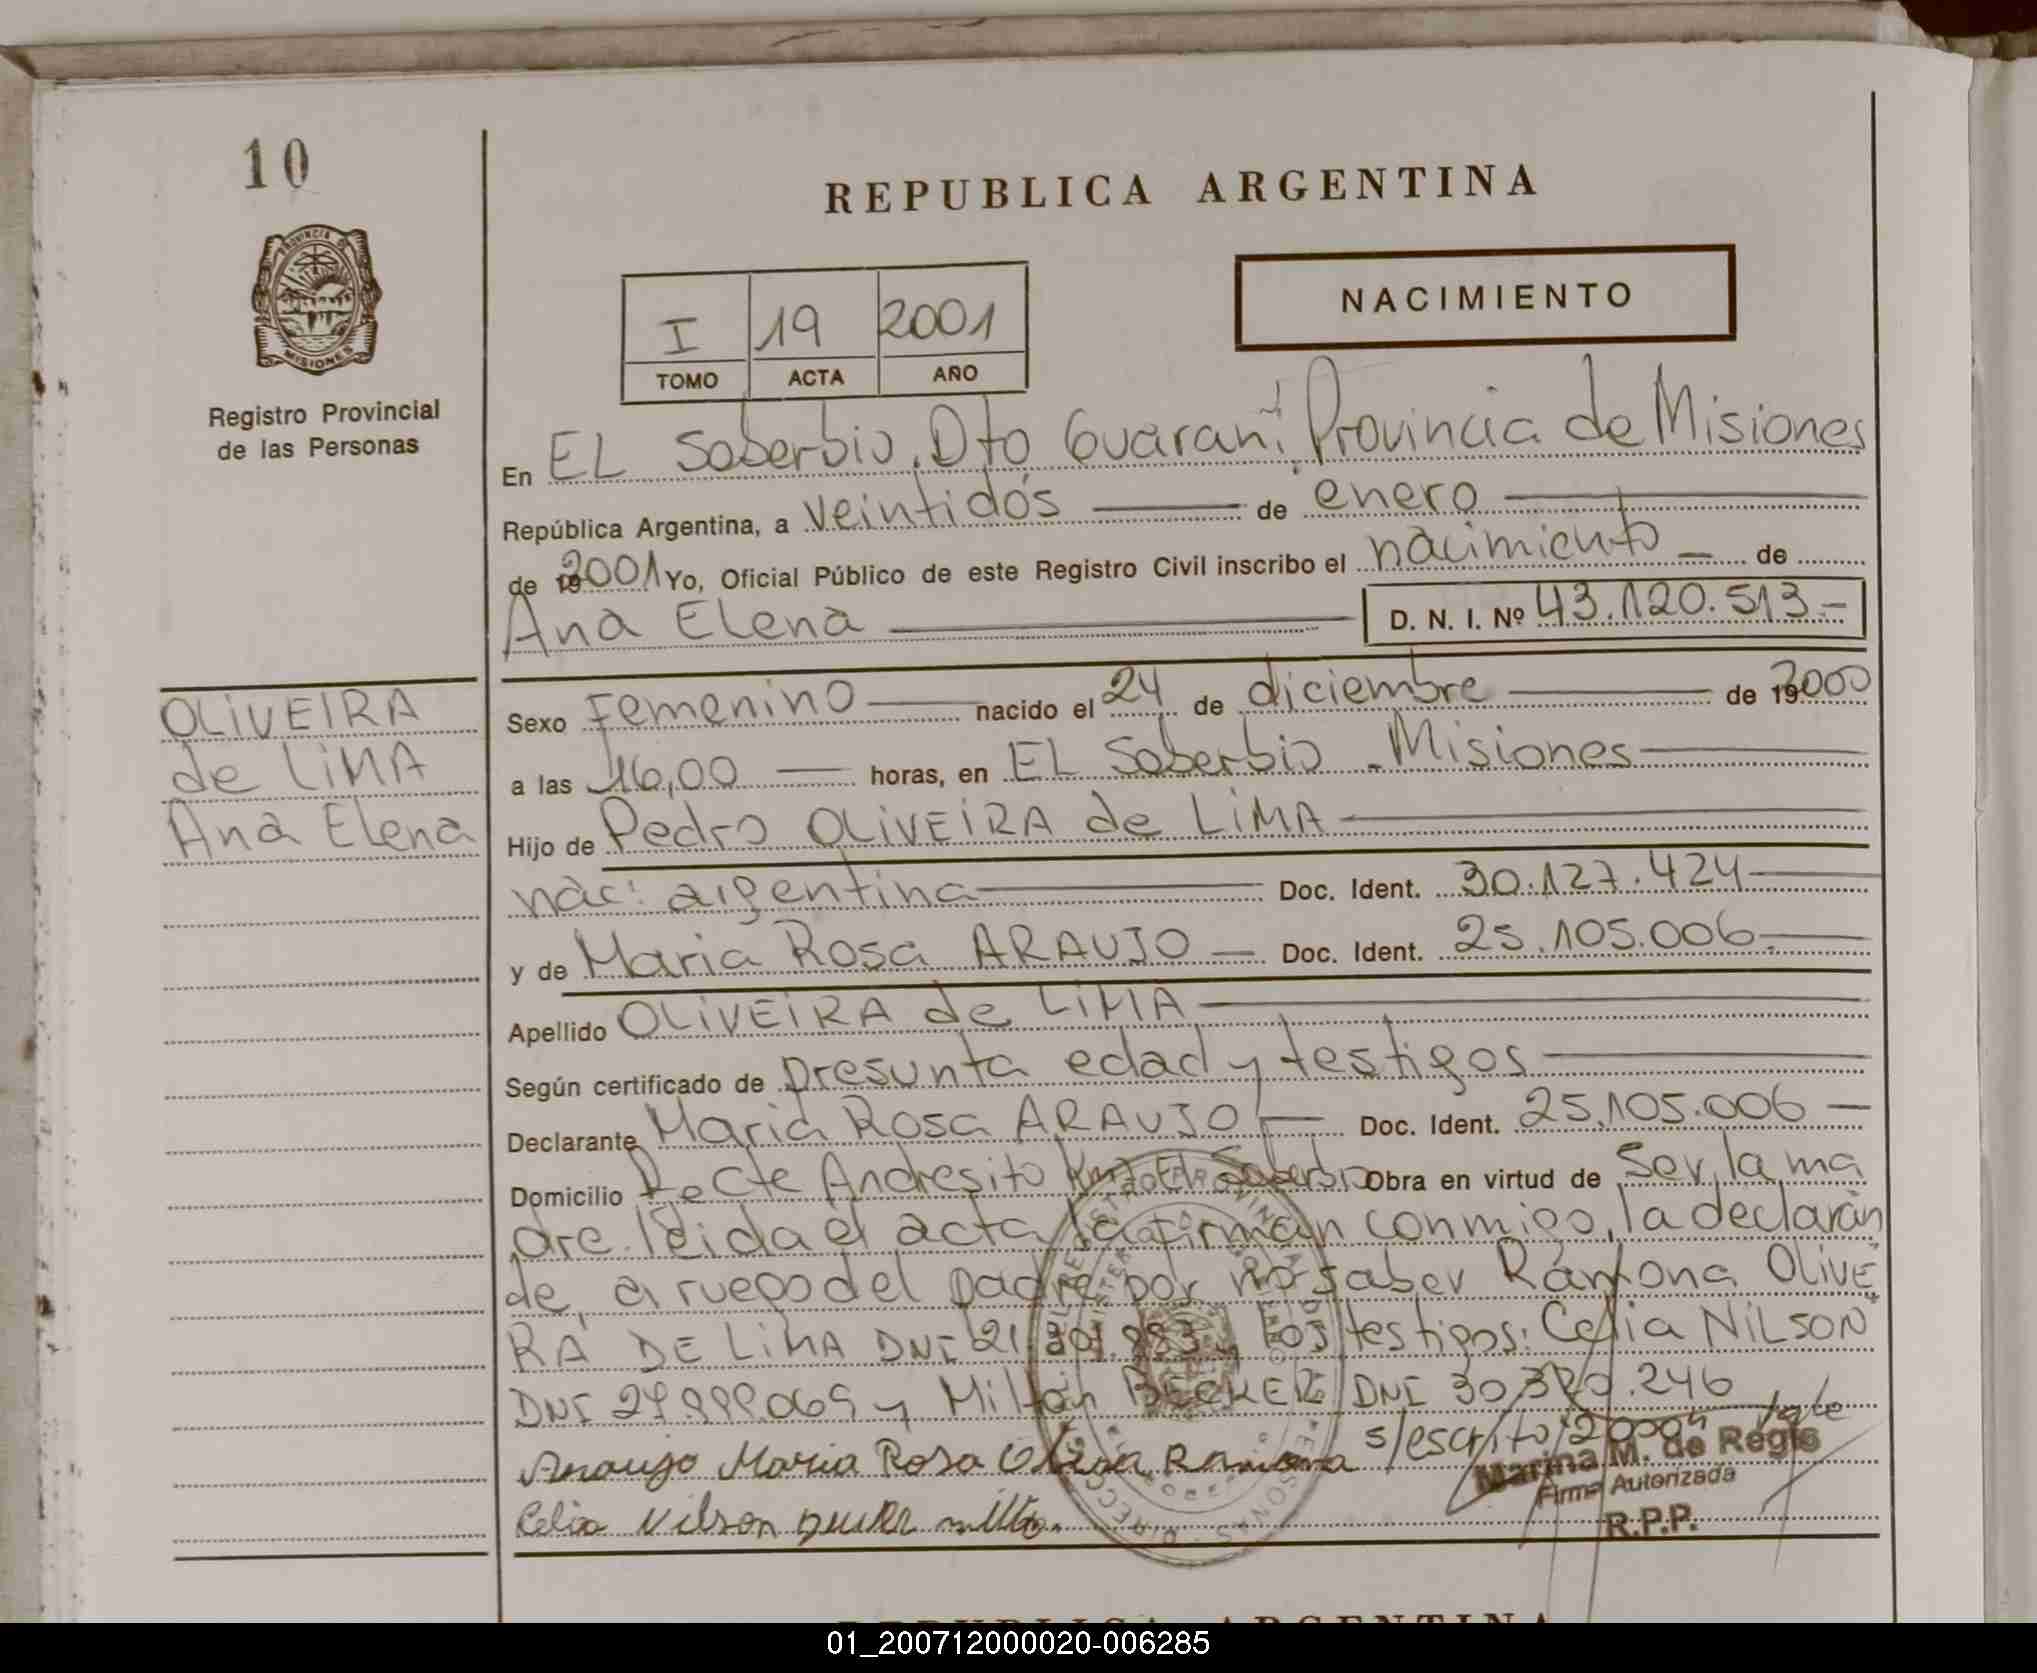 10
REPUBLICA ARGENTINA
PROVINCIA DE
MISIONES
NACIMIENTO
I 19 2001
TOMO ACTA AÑO
Registro Provincial
de las Personas
En EL Soberbio, Dto Guaraní, Provincia de Misiones
República Argentina, a veintidós de enero
de 2001 Yo, Oficial Público de este Registro Civil inscribo el nacimiento de
Ana Elena D. N. I. Nº 43.120.513.-
OLIVEIRA
de LIMA
Ana Elena
Sexo Femenino nacido el 24 de diciembre de 192000
a las 16,00 horas, en EL Soberbio - Misiones
Hijo de Pedro OLIVEIRA de LIMA
nac: argentina Doc. Ident. 30.127.424
y de Maria Rosa ARAUJO Doc. Ident. 25.105.006.
Apellido OLIVEIRA de LIMA
Según certificado de presunta edad y testigos
Declarante Maria Rosa ARAUJO Doc. Ident. 25.105.006
Domicilio Pcte Andresito El Soberbio Obra en virtud de ser la ma
dre. leida el acta la firman conmigo, la declaran
te, a ruego del padre por no saber Ramona OLIVEI
RA DE LIMA DNI 21. .883 y los testigos: Celia NILSON
DNI y Milton BECKER DNI 30.320.246
Araujo Maria Rosa Ramona s/escrito "2000" Vale
Marina M. de Regis
Firma Autorizada
R.P.P.
Celia Nilson
REPUBLICA ARGENTINA
01_200712000020-006285